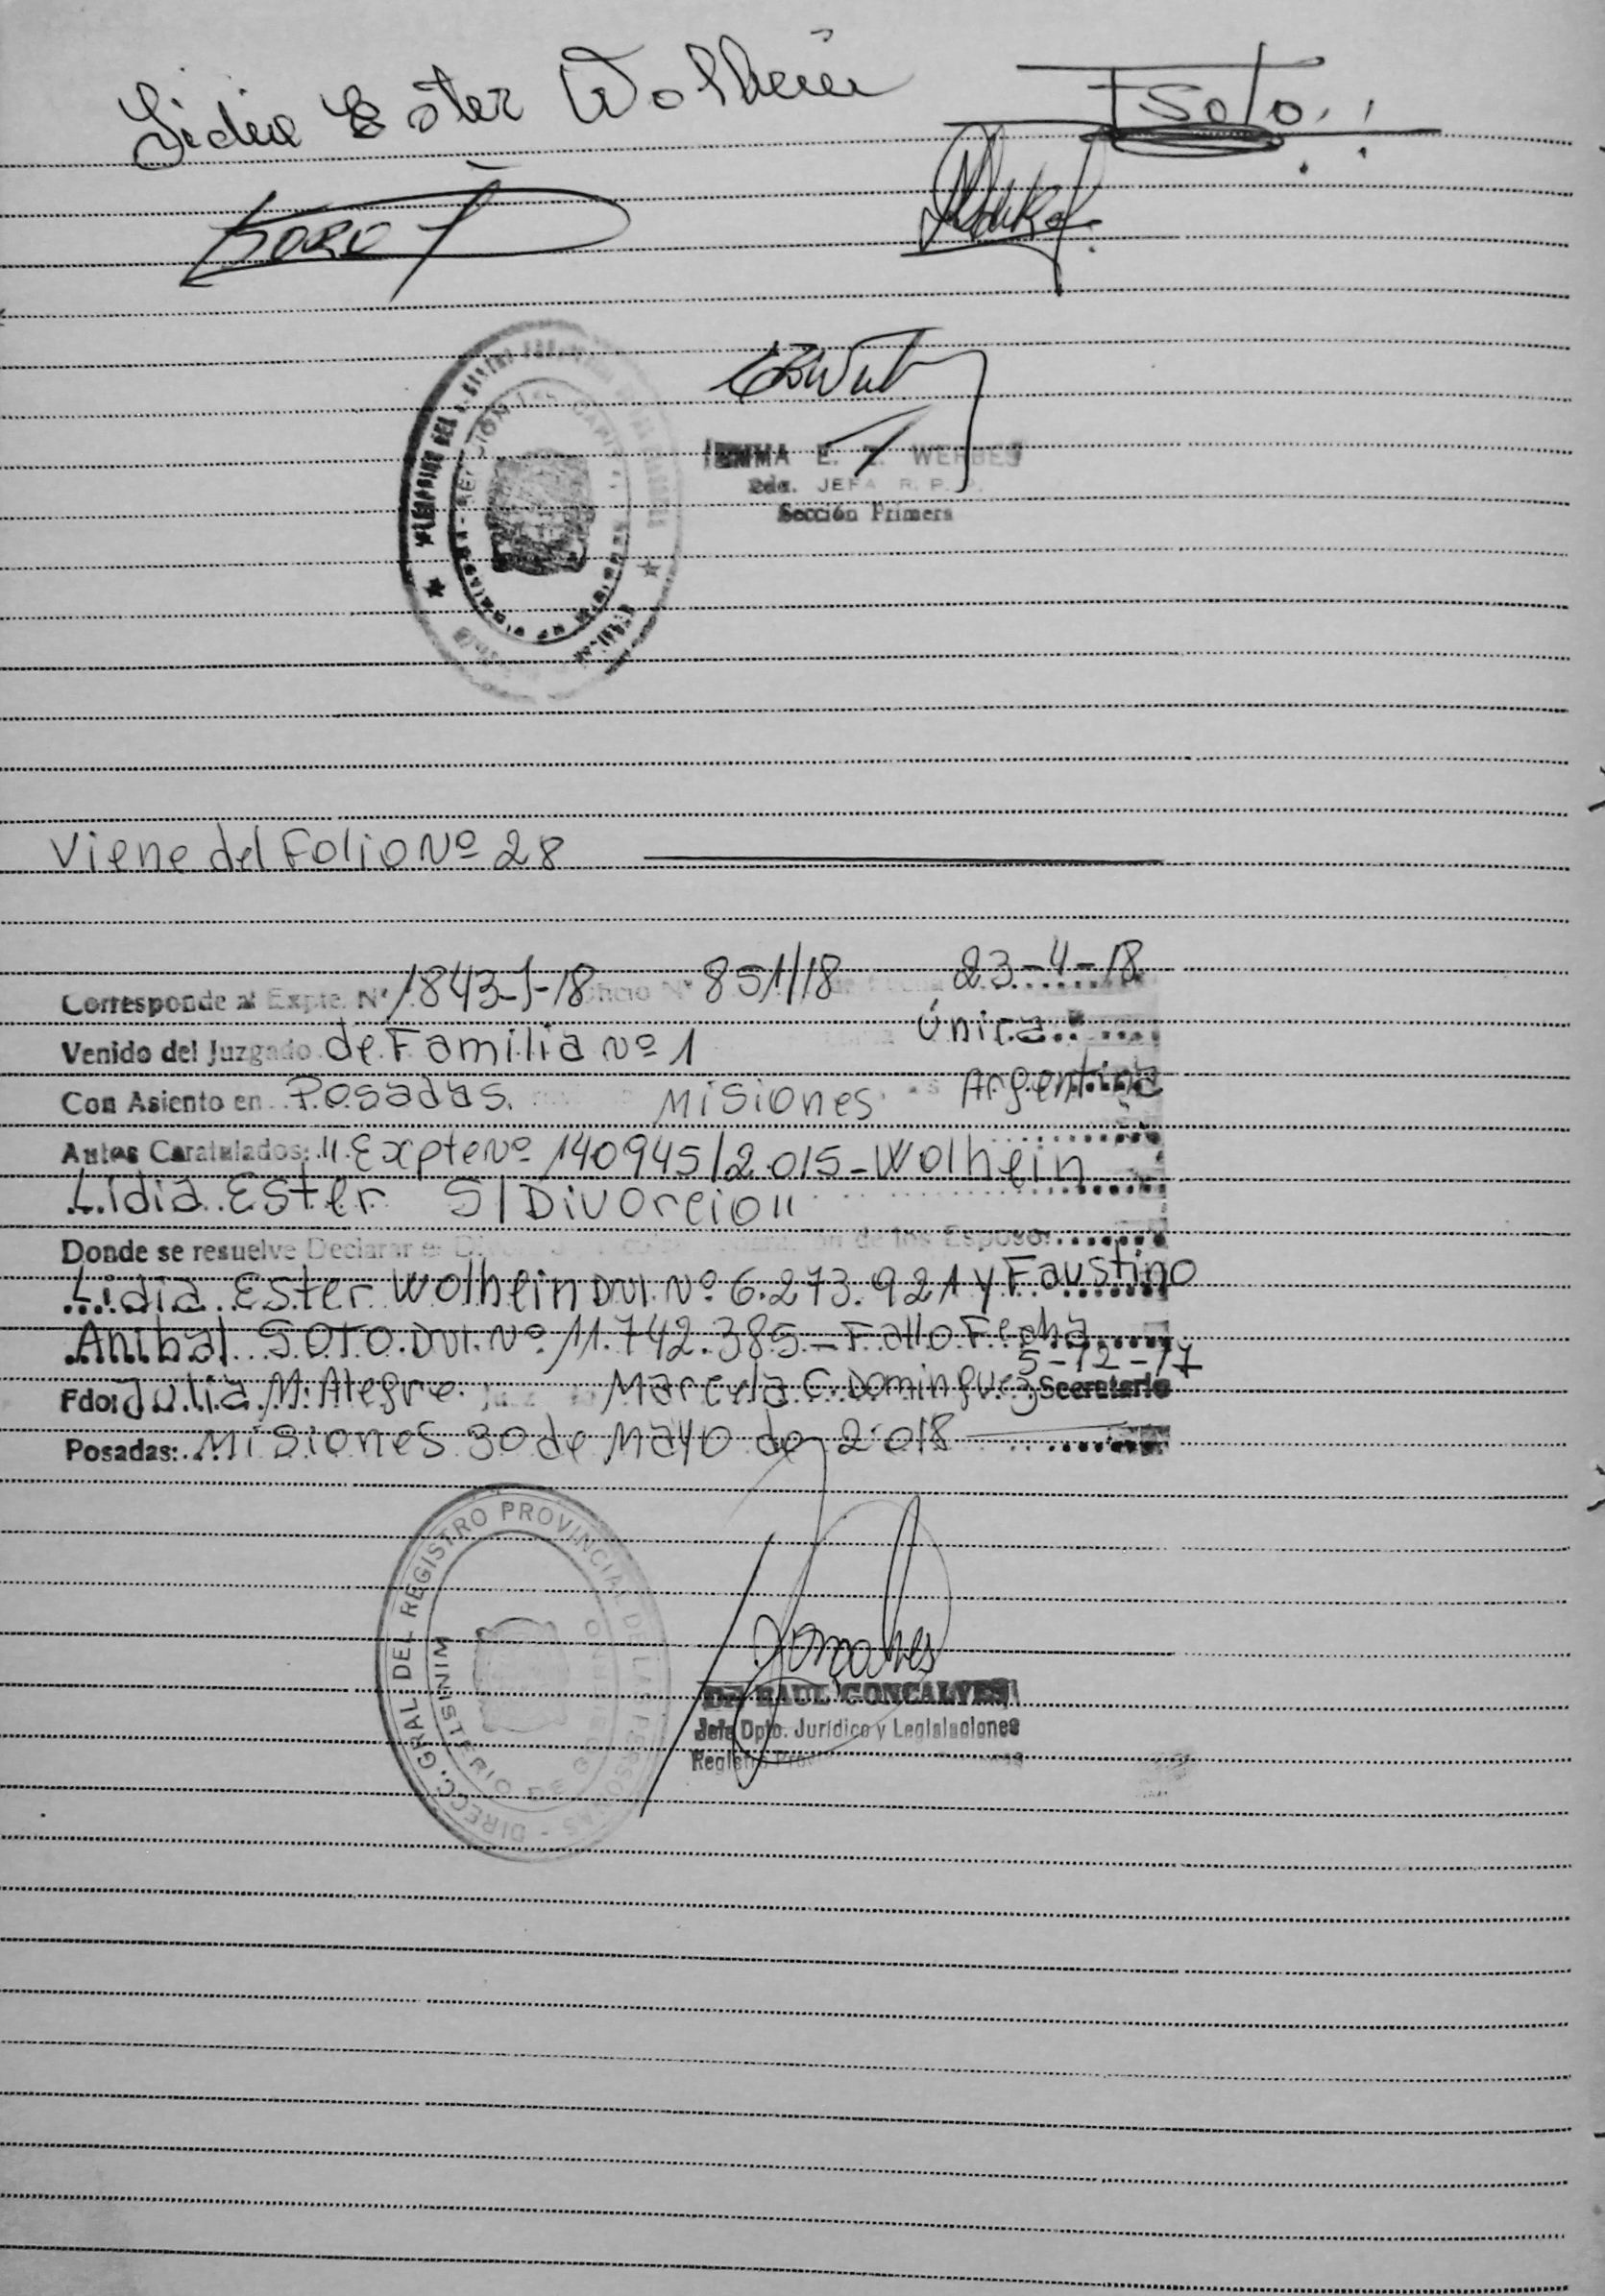 Lidia Ester Wolhein
FSoto
EMMA E. Z. WERBES
2da. JEFA R. P.
Sección Primera
Viene del Folio Nº 28
Corresponde al Expte. Nº 1843-J-18 Oficio Nº 851/18 de Fecha 23-4-18
Venido del Juzgado de Familia Nº 1 Única
Con Asiento en Posadas. Misiones Argentina
Autos Caratulados: "Expte Nº 140945/2.015-Wolhein
Lidia Ester S/Divorcio"
Donde se resuelve Declarar el de los Esposos
Lidia Ester Wolhein DNI. Nº 6.273.921 y Faustino
Anibal SOTO. DNI. Nº 11.742.385-Fallo Fecha
5-12-17
Fdo: Julia M. Alegre. Juez Marcela C. Dominguez Secretario
Posadas: Misiones 30 de Mayo de 2018
DIRECC. GRAL DEL REGISTRO PROVINCIAL DE LAS PERSONAS
MINISTERIO DE GOBIERNO
Dr. RAUL GONCALVES
Jefe Dpto. Jurídico y Legislaciones
Registro